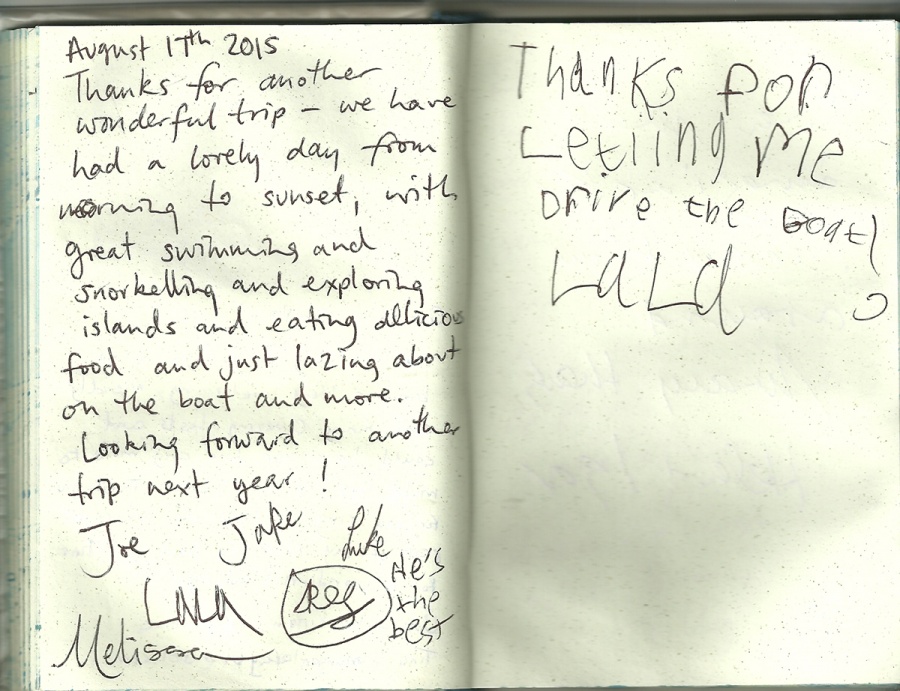 August 17th 2015
Thanks for another
wonderful trip – we have
had a lovely day from
morning to sunset, with
great swimming and
snorkelling and exploring
islands and eating delicious
food and just lazing about
on the boat and more.
Looking forward to another
trip next year!
Joe Jake Luke
LALA He's
the
best
Melissa
Thanks for
Letiing Me
Drive the boat!
LaLa